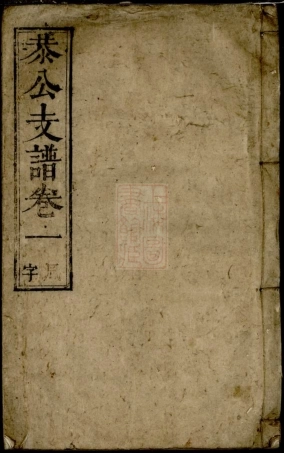 恭公支譜卷一
字